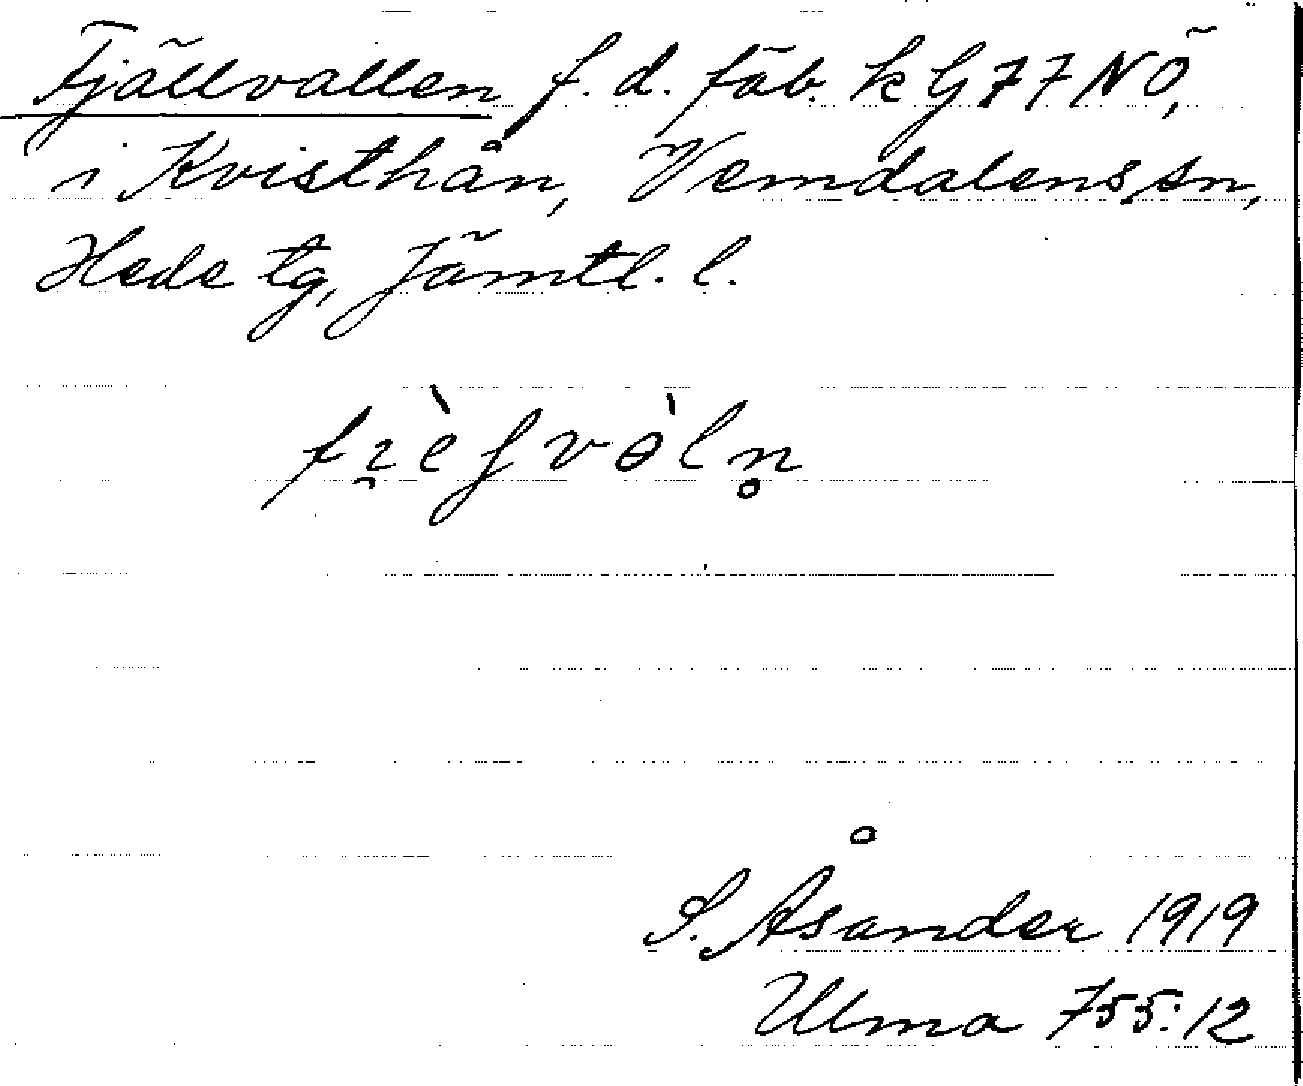 Fjällvallen f. d. fäb. k G 77 NÖ,
i Kvisthån, Vemdalens sn,
Hede tg, Jämtl. l.
S. Åsander 1919
Ulma 755:12